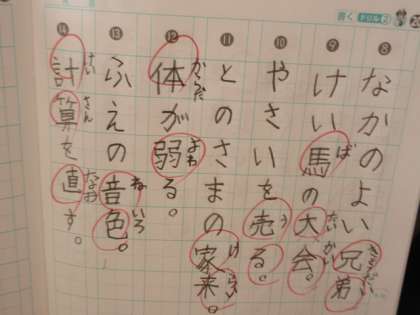 書く ドリル 2
⑧ なかのよい兄弟
きょうだい
⑨ けい馬の大会。
ば たい かい
⑩ やさいを売る。
う
⑪ とのさまの家来。
け らい
⑫ 体が弱る。
からだ よわ
⑬ ふえの音色。
ね いろ
⑭ 計算を直す。
けい さん なお